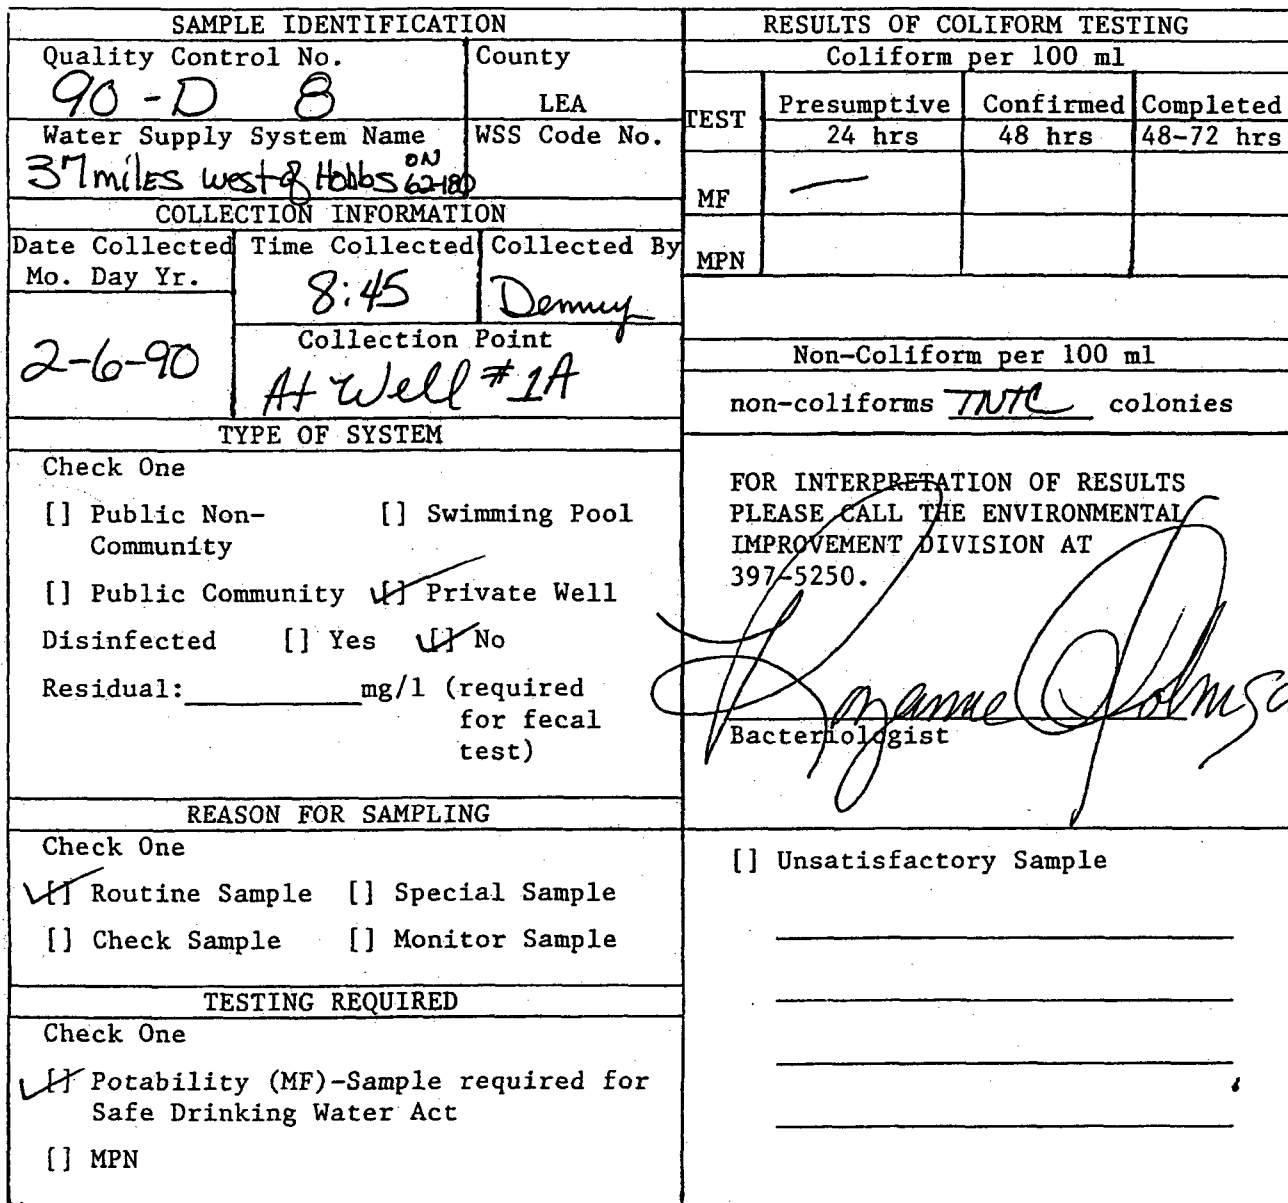 SAMPLE IDENTIFICATION
Quality Control No.
90-D 8
County
LEA
Water Supply System Name
37 miles west of Hobbs ON 62-180
WSS Code No.
COLLECTION INFORMATION
Date Collected
Mo. Day Yr.
2-6-90
Time Collected
8:45
Collected By
Denny
Collection Point
At Well #1A
TYPE OF SYSTEM
Check One
[] Public Non- [] Swimming Pool
Community
[] Public Community [] Private Well
Disinfected [] Yes [] No
Residual: mg/l (required
for fecal
test)
REASON FOR SAMPLING
Check One
[] Routine Sample [] Special Sample
[] Check Sample [] Monitor Sample
TESTING REQUIRED
Check One
[] Potability (MF)-Sample required for
Safe Drinking Water Act
[] MPN
RESULTS OF COLIFORM TESTING
Coliform per 100 ml
TEST
Presumptive Confirmed Completed
24 hrs 48 hrs 48-72 hrs
MF —
MPN
Non-Coliform per 100 ml
non-coliforms TNTC colonies
FOR INTERPRETATION OF RESULTS
PLEASE CALL THE ENVIRONMENTAL
IMPROVEMENT DIVISION AT
397-5250.
Bacteriologist
[] Unsatisfactory Sample